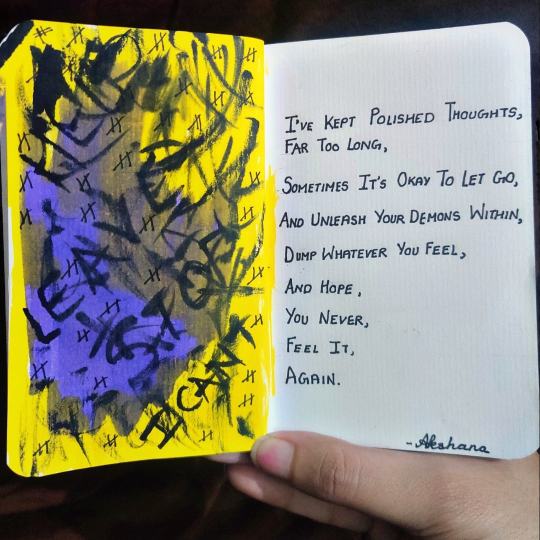 LEAVE
I CAN'T
I've Kept Polished Thoughts,
Far Too Long,
Sometimes It's Okay To Let Go,
And Unleash Your Demons Within,
Dump Whatever You Feel,
And Hope,
You Never,
Feel It,
Again.
-Akshana